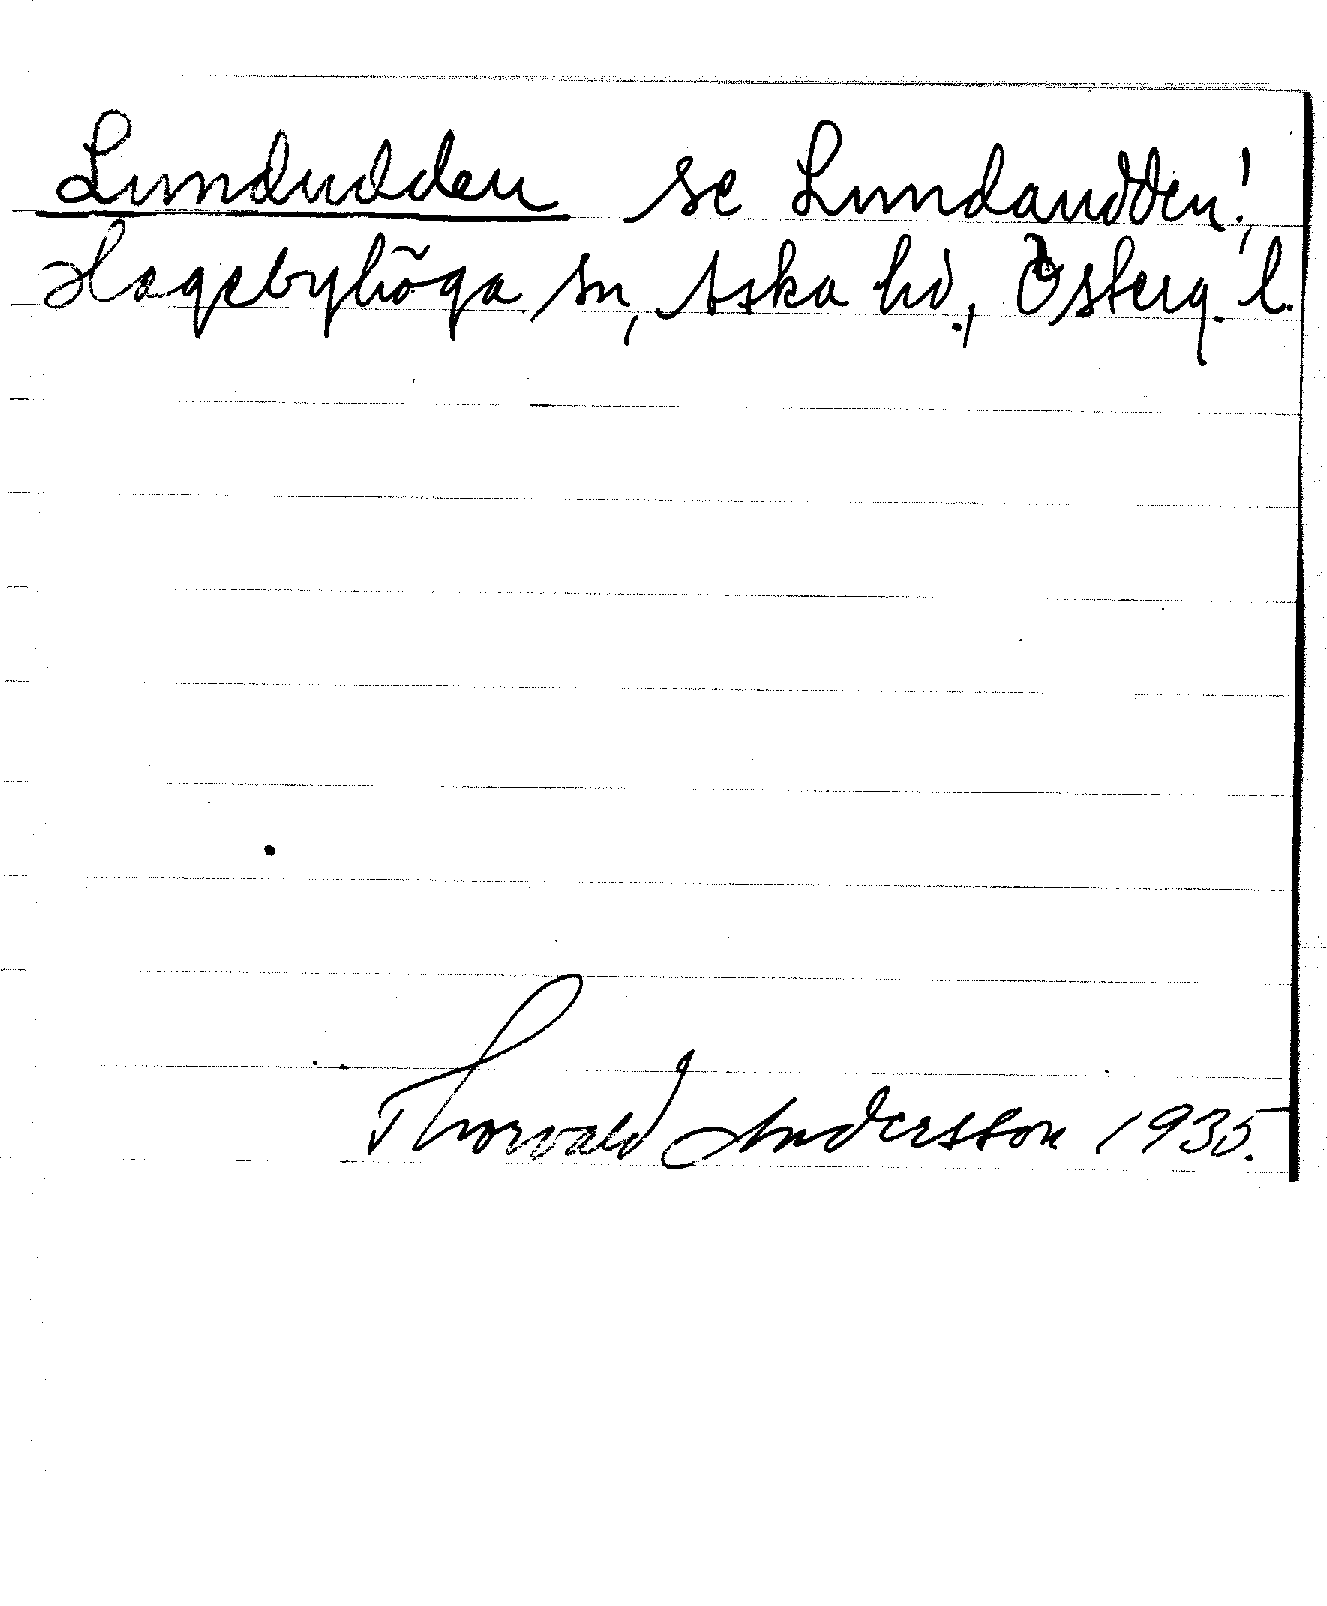 Lundudden se Lundaudden!,
Hagebyhöga sn, Aska hd., Österg. l.
Thorvald Andersson 1935.